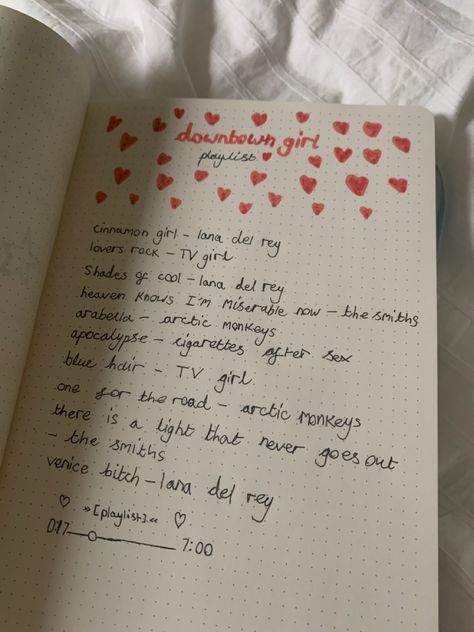 downtown girl
playlist
cinnamon girl - lana del rey
lovers rock - TV girl
Shades of cool - lana del rey
heaven knows I'm miserable now - the smiths
arabella - arctic monkeys
apocalypse - cigarettes after sex
blue hair - TV girl
one for the road - arctic monkeys
there is a light that never goes out
- the smiths
venice bitch - lana del rey
»[playlist].«
0:17 7:00